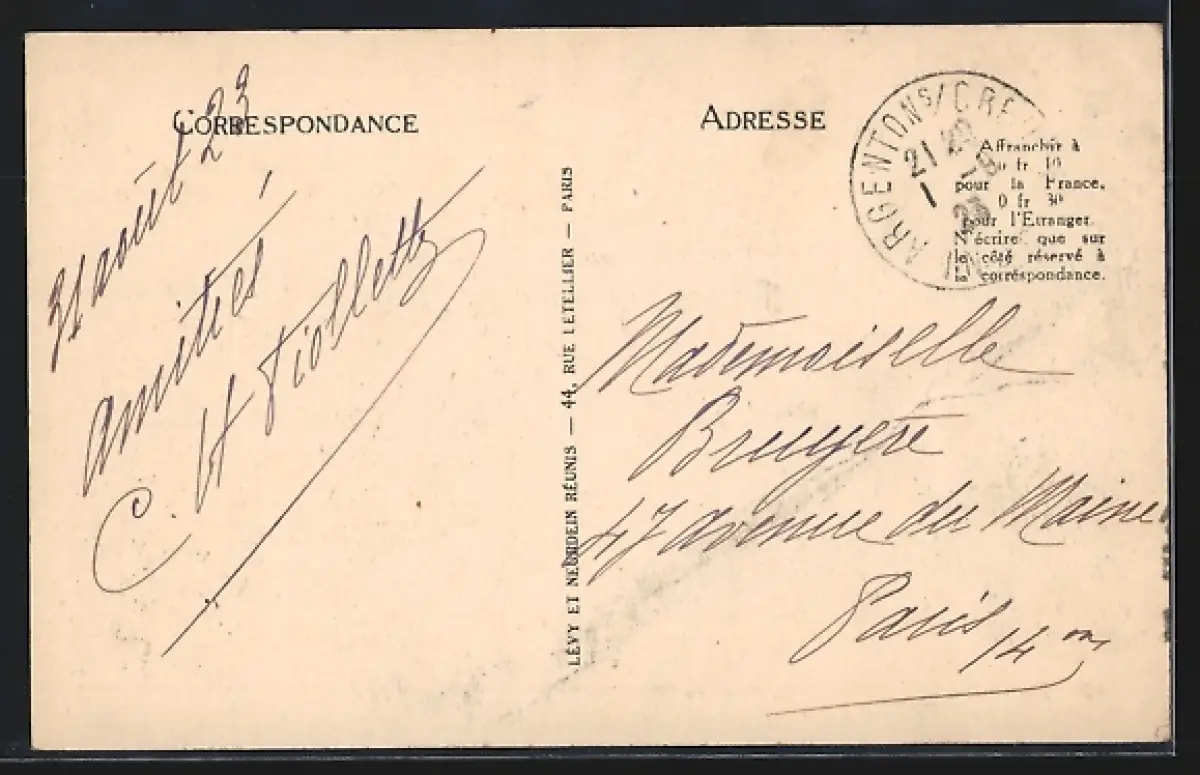 CORRESPONDANCE
31 août 23
amitiés
C. H Fiollette
LÉVY ET NEURDEIN RÉUNIS — 44, RUE LETELLIER — PARIS
ADRESSE
ARGENTON S/CREUSE
21
23
Affranchir à
0 fr 10
pour la France,
0 fr 30
pour l'Etranger.
N'écrire que sur
le côté réservé à
la correspondance.
Mademoiselle
Bruyère
47 avenue du Maine
Paris 14